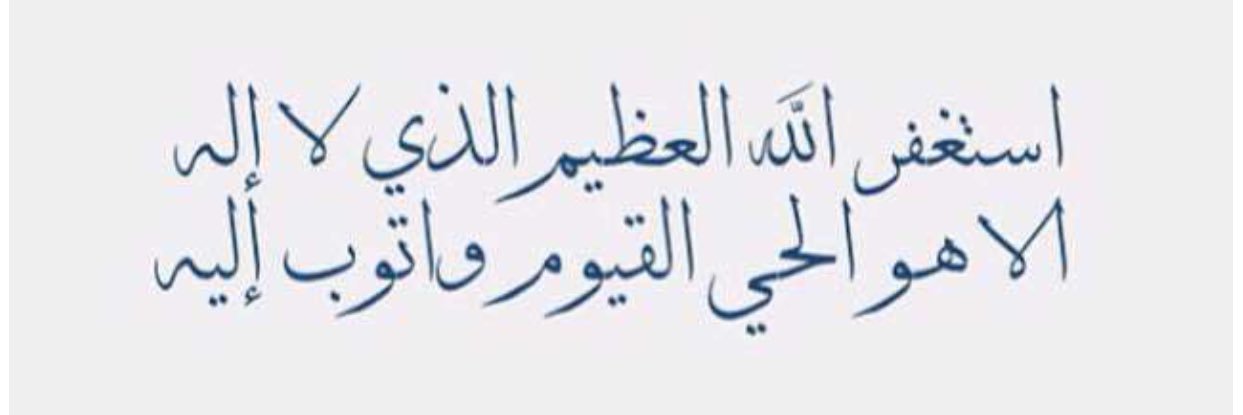 استغفر الله العظيم الذي لا إله
الا هو الحي القيوم واتوب إليه